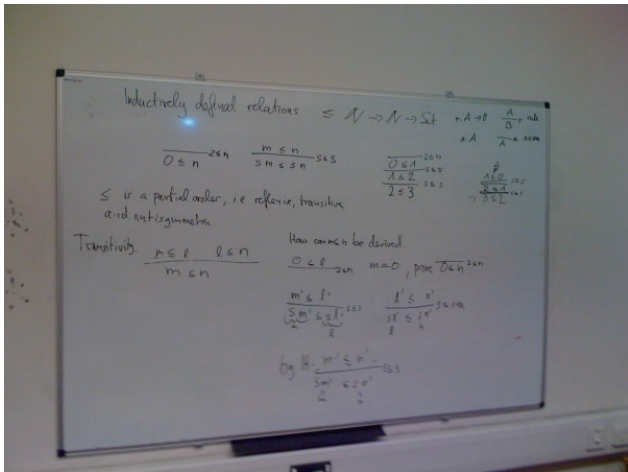 Inductively defined relations ≤ N → N → Set r: A → B A/B r rule
a: A A a axiom
0 ≤ n z≤n m ≤ n s≤s 0 ≤ 1 z≤n
sm ≤ sn 1 ≤ 2 s≤s 1 ≤ 0
2 ≤ 3 s≤s 2 ≤ 1 s≤s
3 ≤ 2 s≤s
≤ is a partial order, i.e. reflexive, transitive
and antisymmetric
Transitivity. m ≤ l l ≤ n
m ≤ n
How can m≤n be derived
0 ≤ l z≤n m = 0, prove 0 ≤ n z≤n
m' ≤ l' l' ≤ n'
sm' ≤ sl' s≤s sl' ≤ sn' s≤s
m l l n
by IH. m' ≤ n'
sm' ≤ sn' s≤s